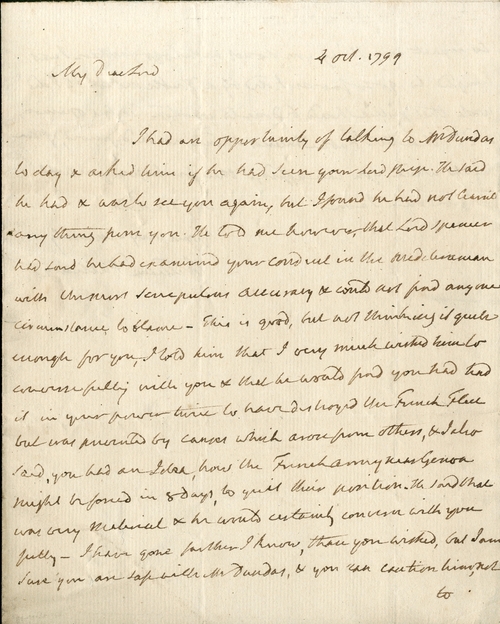 4 Oct. 1799
My Dear Lord
I had an opportunity of talking to Mr Dundas
to day & asked him if he had seen your Lordship. He said
he had & was to see you again, but I found he had not learnt
any thing from you. He told me however, that Lord Spencer
had said he had examined your conduct in the Mediterranean
with the most scrupulous accuracy & could not find any one
circumstance to blame – this is good, but not thinking it quite
enough for you, I told him that I very much wished him to
converse fully with you & that he would find you had had
it in your power twice to have destroyed the French Fleet
but was prevented by causes which arose from others, & I also
said, you had an Idea, how the French army near Genoa
might be forced in 8 days, to quit their position. He said that
was very Material & he would certainly converse with you
fully – I have gone further I know, than you wished, but I am
sure you are safe with Mr Dundas, & you can caution him, not
to